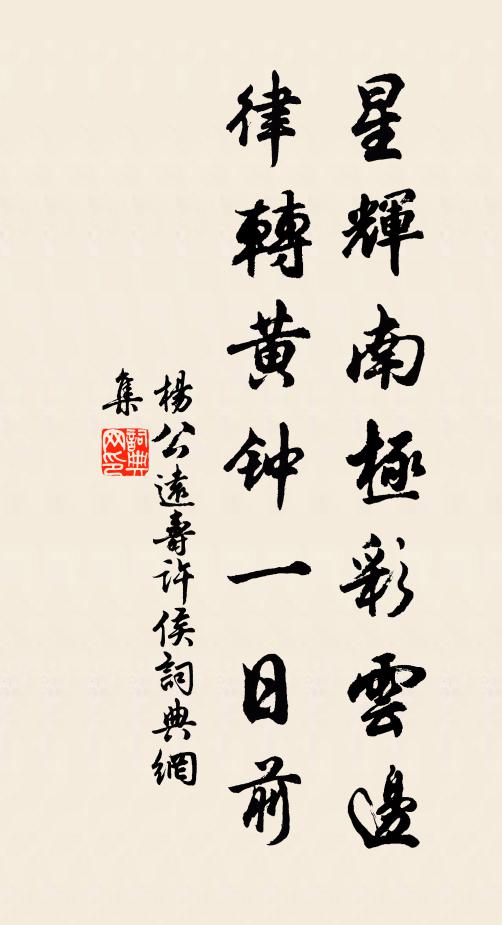 星輝南極彩雲邊
律轉黄钟一日前
楊公遠壽許侯詞典網
集
詞典网印